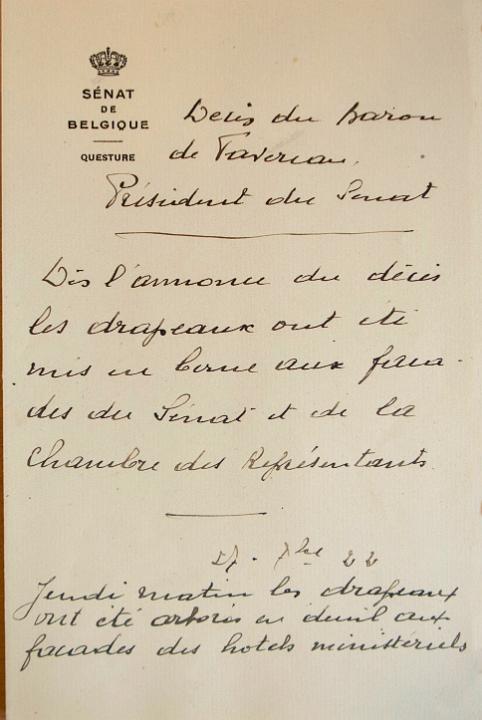 SÉNAT
DE
BELGIQUE
QUESTURE
Décès du baron
de Favereau,
Président du Sénat
Dès l'annonce du décès
les drapeaux ont été
mis en berne aux faca-
des du Sénat et de la
Chambre des Représentants.
7bre 22
Jeudi matin les drapeaux
ont été arborés en deuil aux
facades des hotels ministériels